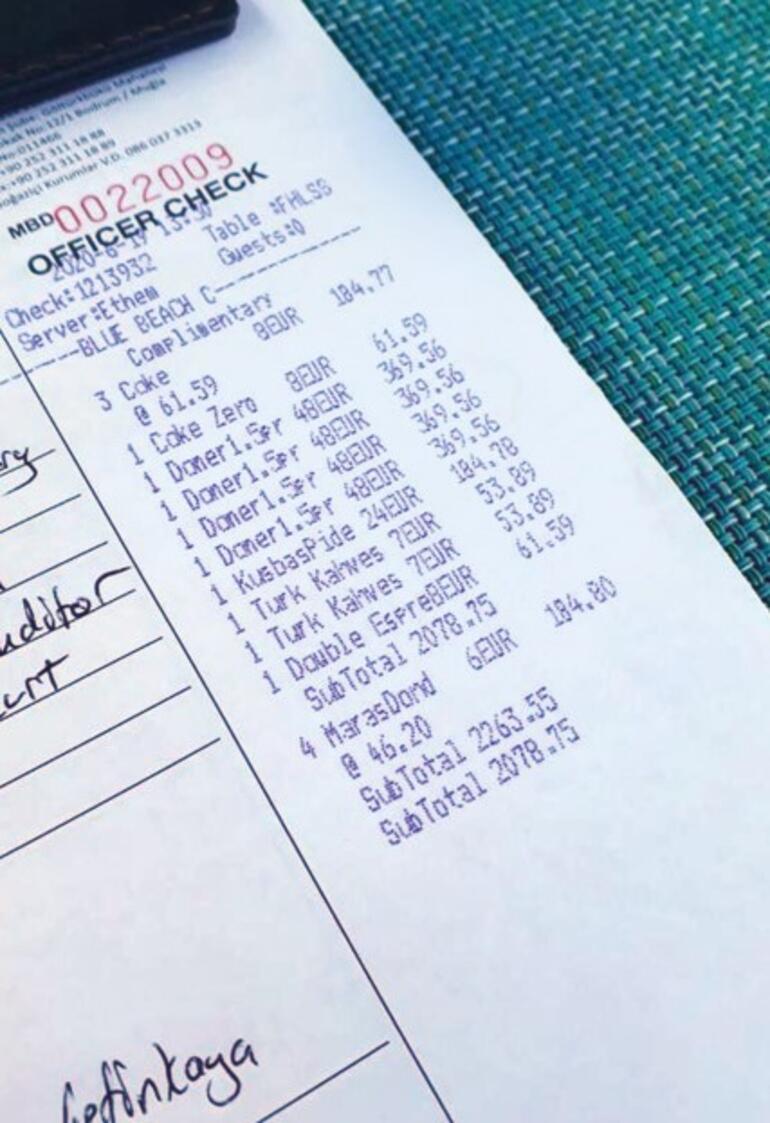 Şube: Göltürkbükü Mahallesi
Sokak No:12/1 Bodrum / Muğla
No:011466
+90 252 311 18 88
+90 252 311 18 89
Boğaziçi Kurumlar V.D. 086 037 3313
MBD 0022009
OFFICER CHECK
Table :FHLSG
Check:1213932 Guests:0
Server:Ethem
-----BLUE BEACH C-----
Complimentary
3 Coke 8EUR 184.77
@ 61.59
1 Coke Zero 8EUR 61.59
1 Doner1.5pr 48EUR 369.56
1 Doner1.5pr 48EUR 369.56
1 Doner1.5pr 48EUR 369.56
1 Doner1.5pr 48EUR 369.56
1 KusbasPide 24EUR 184.78
1 Turk Kahves 7EUR 53.89
1 Turk Kahves 7EUR 53.89
1 Double Espre8EUR 61.59
SubTotal 2078.75
4 MarasDond 6EUR 184.80
@ 46.20
SubTotal 2263.55
SubTotal 2078.75